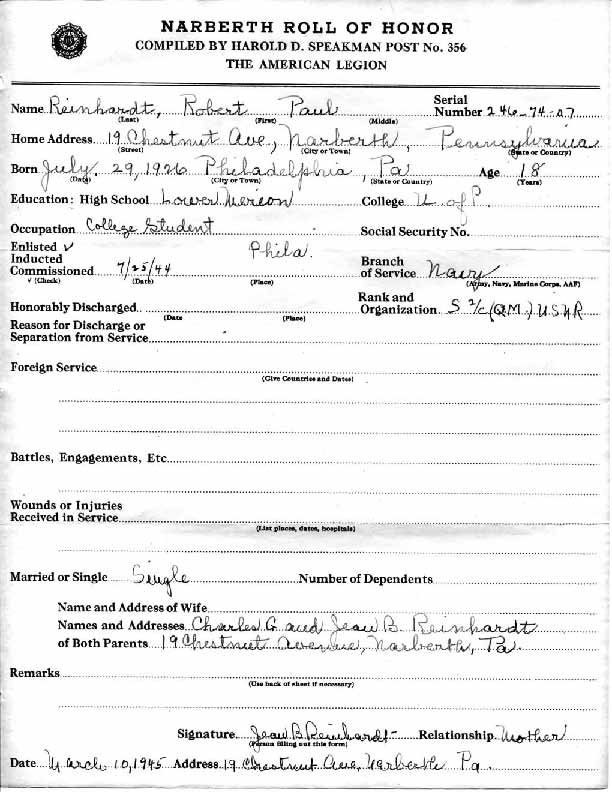 NARBERTH ROLL OF HONOR
COMPILED BY HAROLD D. SPEAKMAN POST No. 356
THE AMERICAN LEGION
Name Reinhardt, Robert Paul Serial Number 246-74-07
(Last) (First) (Middle)
Home Address 19 Chestnut Ave., Narberth, Pennsylvania
(Street) (City or Town) (State or Country)
Born July 29, 1926 Philadelphia, Pa Age 18
(Date) (City or Town) (State or Country) (Years)
Education: High School Lower Merion College U. of P.
Occupation College Student Social Security No.
Enlisted √
Inducted
Commissioned 7/25/44 Phila. Branch of Service Navy
√ (Check) (Date) (Place) (Army, Navy, Marine Corps, AAF)
Honorably Discharged Rank and Organization S 2/c (QM.) USNR
(Date (Place)
Reason for Discharge or
Separation from Service
Foreign Service
(Give Countries and Dates)
Battles, Engagements, Etc.
Wounds or Injuries
Received in Service
(List places, dates, hospitals)
Married or Single Single Number of Dependents
Name and Address of Wife
Names and Addresses Charles G. and Jean B. Reinhardt
of Both Parents 19 Chestnut Avenue, Narberth, Pa.
Remarks
(Use back of sheet if necessary)
Signature Jean B Reinhardt Relationship Mother
(Person filling out this form)
Date March 10, 1945 Address 19 Chestnut Ave, Narberth Pa